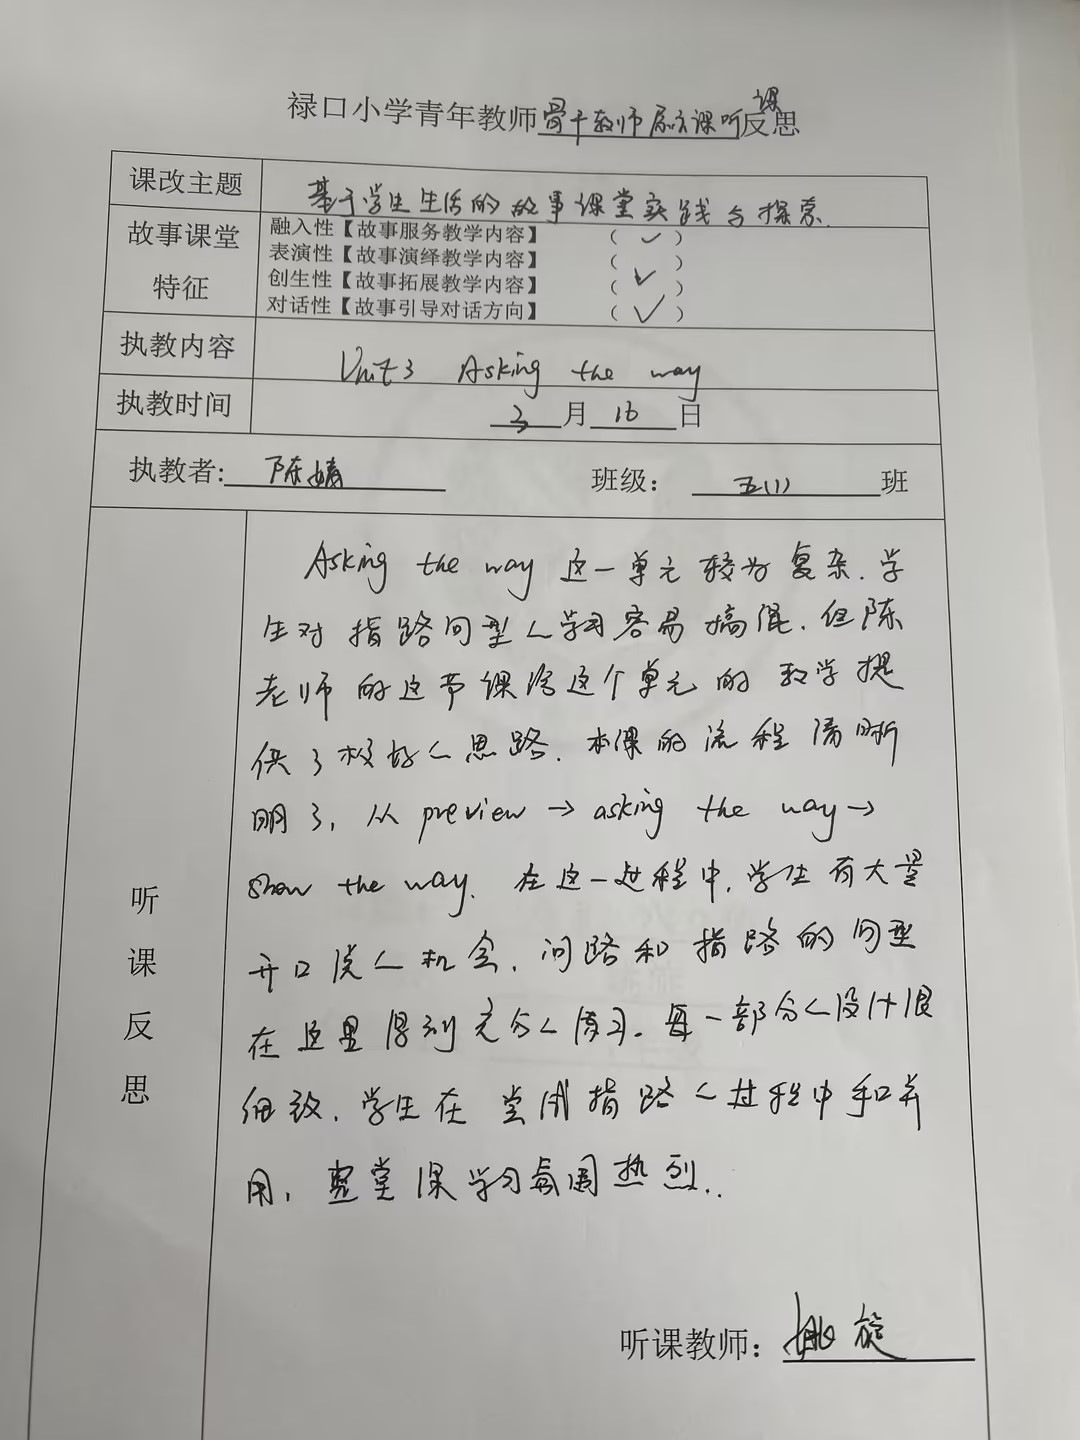 禄口小学青年教师骨干教师展示课听课反思
课改主题 基于学生生活的故事课堂实践与探索.
故事课堂特征
融入性【故事服务教学内容】 (✓)
表演性【故事演绎教学内容】 ( )
创生性【故事拓展教学内容】 (✓)
对话性【故事引导对话方向】 (✓)
执教内容 Unit3 Asking the way
执教时间 3月16日
执教者: 陈婧 班级: 五(1)班
听课反思
Asking the way 这一单元较为复杂.学
生对指路句型的学习容易搞混.但陈
老师的这节课给这个单元的教学提
供了极好的思路.本课的流程清晰
明了,从preview→asking the way→
show the way.在这一过程中,学生有大量
开口说的机会,问路和指路的句型
在这里得到充分的练习.每一部分的设计很
细致,学生在尝试指路的过程中手口并
用,整堂课学习氛围热烈..
听课教师: 姚旋